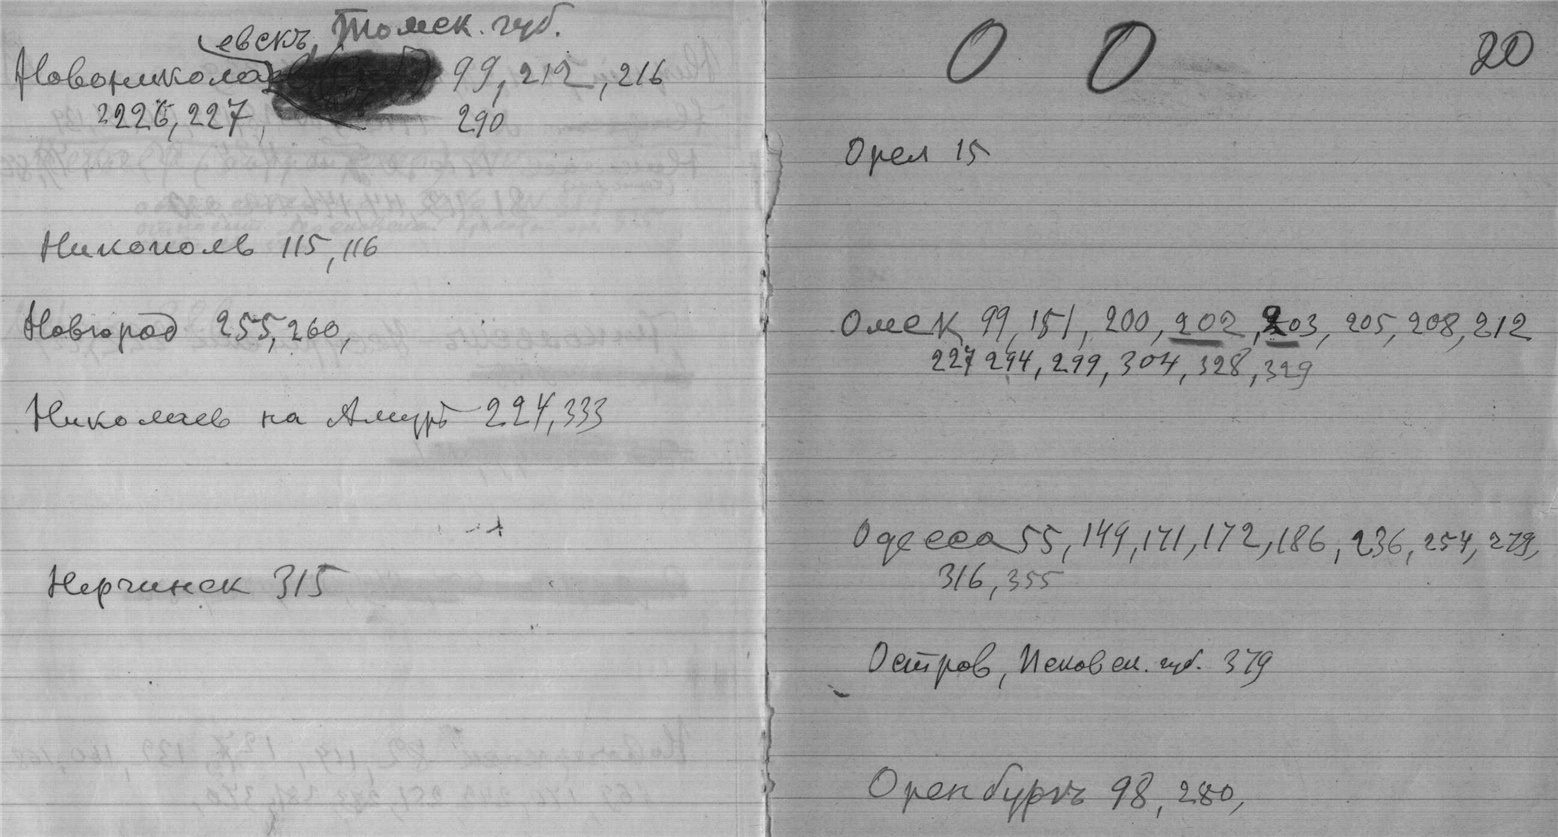 евскъ, Томск. губ.
Новоникола 99, 212, 216
222б, 227, 290
Никополь 115, 116
Новгород 255, 260,
Николаев на Амурѣ 224, 333
Нерчинск 315
О О 20
Орел 15
Омск 99, 151, 200, 202, 203, 205, 208, 212
227 294, 299, 304, 328, 329
Одесса 55, 149, 171, 172, 186, 236, 254, 279,
316, 355
Остров, Псковск. губ. 379
Оренбургъ 98, 280,